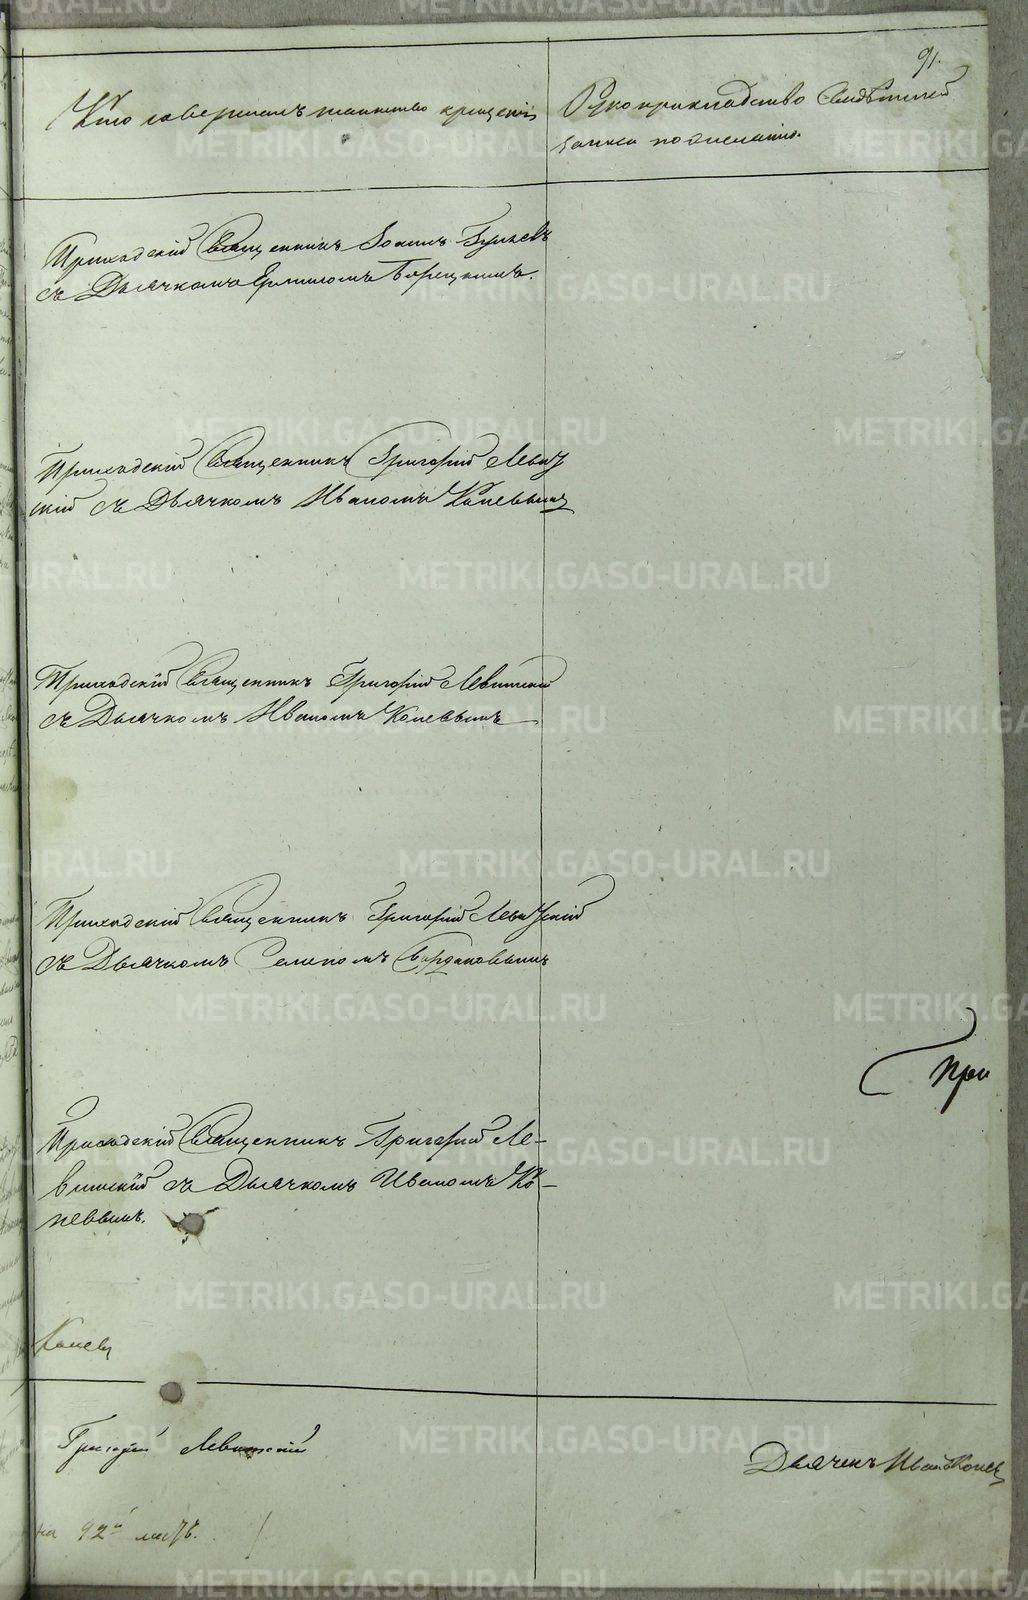 91.
Кто совершалъ таинство крещенія
Рукоприкладство свидѣтелей
записи по желанію.
Приходскій Священникъ Іоаннъ
съ Дьячкомъ Ермиломъ Борецкимъ.
Приходскій Священникъ Григорій Левит
скій съ Дьячкомъ Иваномъ Коневымъ
Приходскій Священникъ Григорій Левитскій
съ Дьячкомъ Иваномъ Коневымъ
Приходскій Священникъ Григорій Левитскій
съ Дьячкомъ Семеномъ
При
Приходскій Священникъ Григорій Ле-
витскій съ Дьячкомъ Иваномъ Ко-
невымъ.
Коневъ
Григорій Левитскій
Дьячекъ Иванъ Коневъ
на 92й листъ.
METRIKI.GASO-URAL.RU